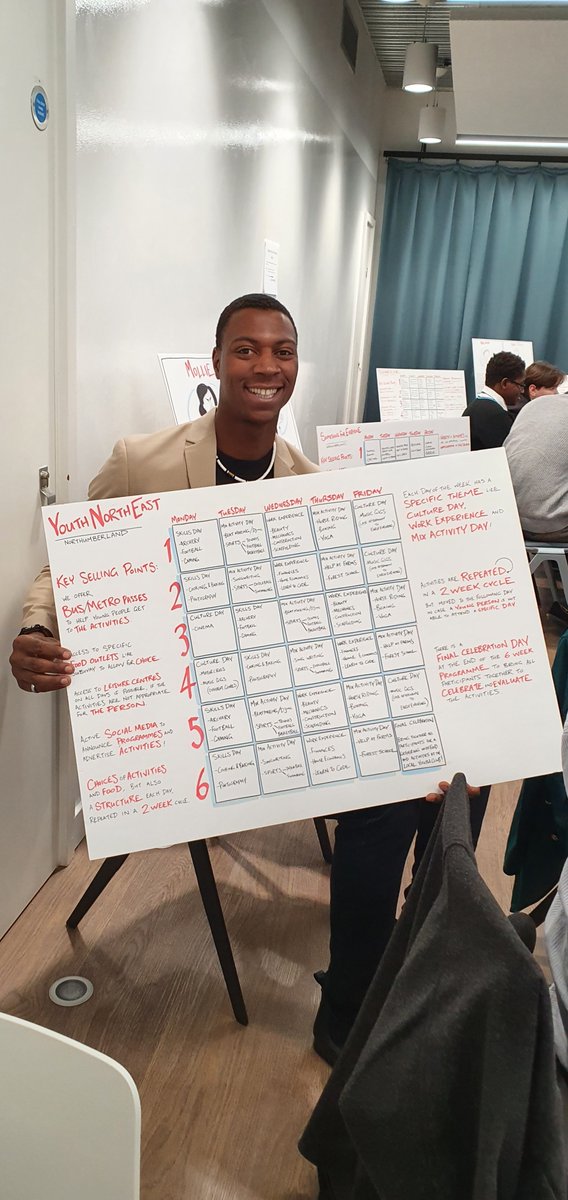 MOLLIE
SOMETHING FOR EVERYONE
KEY SELLING POINTS
1
YOUTH NORTH EAST
NORTHUMBERLAND
KEY SELLING POINTS:
WE OFFER
BUS/METRO PASSES
TO HELP YOUNG PEOPLE GET
TO THE ACTIVITIES
ACCESS TO SPECIFIC
FOOD OUTLETS LIKE
TO ALLOW FOR CHOICE
ACCESS TO LEISURE CENTRES
ON ALL DAYS IF REQUIRED, IF THE
ACTIVITIES ARE NOT APPROPRIATE
FOR THE PERSON
ACTIVE SOCIAL MEDIA TO
ANNOUNCE PROGRAMMES AND
ADVERTISE ACTIVITIES!
CHOICES OF ACTIVITIES
AND FOOD, BUT ALSO
A STRUCTURE EACH DAY,
REPEATED IN A 2 WEEK CYCLE
MONDAY
TUESDAY
WEDNESDAY
THURSDAY
FRIDAY
1
SKILLS DAY
ARCHERY
FOOTBALL
CANOEING
MIX ACTIVITY DAY
SPORTS
TENNIS
FOOTBALL
BASKETBALL
WORK EXPERIENCE
BEAUTY
MECHANICS
CONSTRUCTION
SCAFFOLDING
MIX ACTIVITY DAY
HORSE RIDING
BOXING
YOGA
CULTURE DAY
MUSIC GIGS
2
SKILLS DAY
COOKING & BAKING
PHOTOGRAPHY
MIX ACTIVITY DAY
SONGWRITING
SPORTS
WORK EXPERIENCE
FINANCES
HOME ECONOMICS
LEARN TO CODE
MIX ACTIVITY DAY
HELP AT FARMS
FOREST SCHOOL
CULTURE DAY
MUSIC GIGS
3
CULTURE DAY
CINEMA
SKILLS DAY
ARCHERY
FOOTBALL
CANOEING
MIX ACTIVITY DAY
SPORTS
TENNIS
FOOTBALL
BASKETBALL
WORK EXPERIENCE
BEAUTY
MECHANICS
CONSTRUCTION
SCAFFOLDING
MIX ACTIVITY DAY
HORSE RIDING
BOXING
YOGA
4
CULTURE DAY
MUSIC GIGS
SKILLS DAY
COOKING & BAKING
PHOTOGRAPHY
MIX ACTIVITY DAY
SONG WRITING
SPORTS
WORK EXPERIENCE
FINANCES
HOME ECONOMICS
LEARN TO CODE
MIX ACTIVITY DAY
HELP AT FARMS
FOREST SCHOOL
5
SKILLS DAY
ARCHERY
FOOTBALL
CANOEING
MIX ACTIVITY DAY
SPORTS
TENNIS
FOOTBALL
BASKETBALL
WORK EXPERIENCE
BEAUTY
MECHANICS
CONSTRUCTION
SCAFFOLDING
MIX ACTIVITY DAY
HORSE RIDING
BOXING
YOGA
CULTURE DAY
MUSIC GIGS
6
SKILLS DAY
COOKING & BAKING
PHOTOGRAPHY
MIX ACTIVITY DAY
SONGWRITING
SPORTS
WORK EXPERIENCE
FINANCES
HOME ECONOMICS
LEARN TO CODE
MIX ACTIVITY DAY
HELP AT FARMS
FOREST SCHOOL
FINAL CELEBRATION
EACH DAY OF THE WEEK HAS A
SPECIFIC THEME LIKE
CULTURE DAY,
WORK EXPERIENCE AND
MIX ACTIVITY DAY!
ACTIVITIES ARE REPEATED
IN A 2 WEEK CYCLE
BUT MOVED TO THE FOLLOWING DAY
IN CASE A YOUNG PERSON IS NOT
ABLE TO ATTEND A SPECIFIC DAY
THERE IS A
FINAL CELEBRATION DAY
AT THE END OF THE 6 WEEK
PROGRAMME, TO BRING ALL
PARTICIPANTS TOGETHER TO
CELEBRATE AND EVALUATE
THE ACTIVITIES.